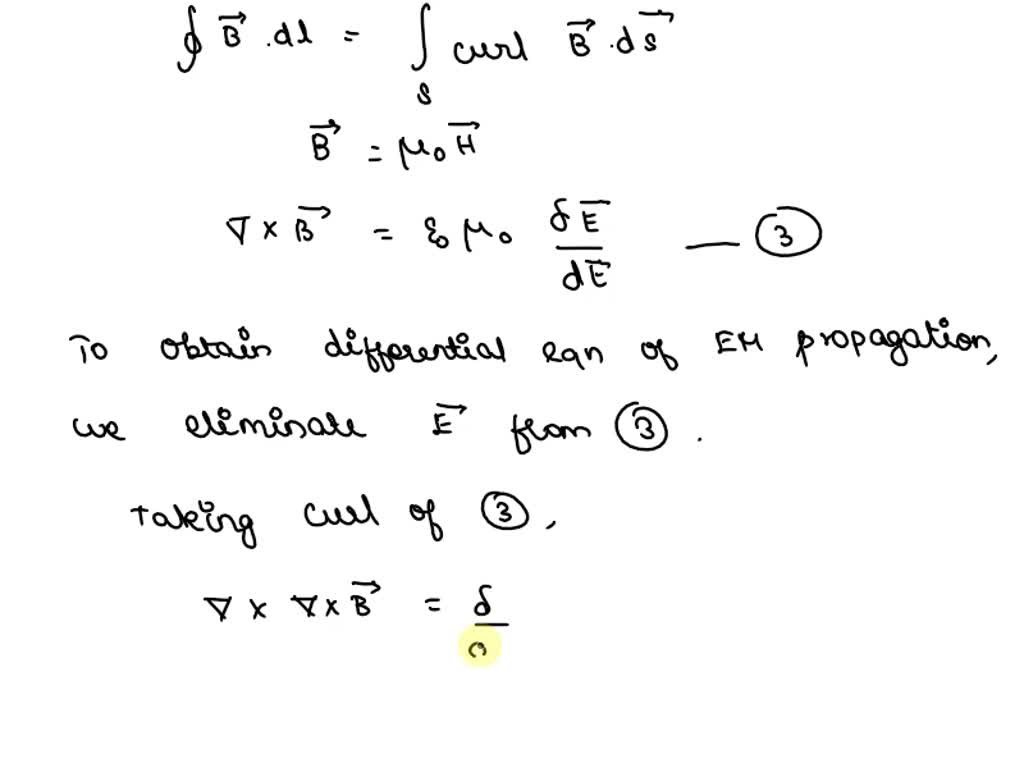 ∮ B⃗ .dl = ∫_S curl B⃗ .dS⃗
B⃗ = μ₀ H⃗
∇ × B⃗ = ε₀ μ₀ δE⃗/dE⃗ — ③
To obtain differential eqn of EM propagation,
we eliminate E⃗ from ③ .
Taking Curl of ③ ,
∇ × ∇ × B⃗ = δ/